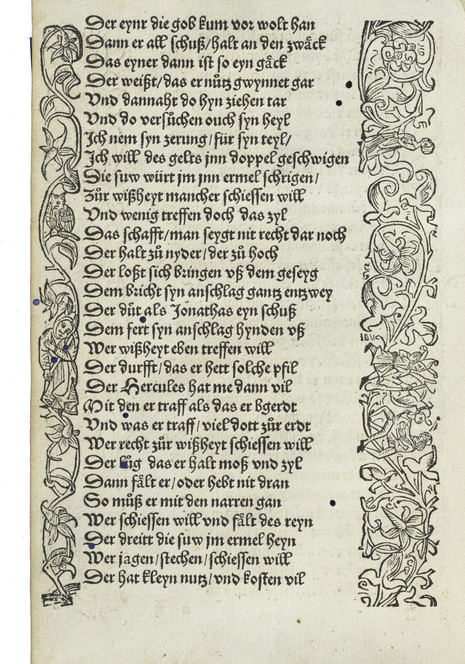 Der eynr die gob kum vor wolt han
Dann er all schuß/halt an den zwäck
Das eyner dann ist so eyn gäck
Der weißt/das er nütz gwynnet gar
Vnd dannaht do hyn ziehen tar
Vnd do versůchen ouch syn heyl
Ich nem syn zerung/für syn teyl/
Ich will des gelts jnn doppel geschwigen
Die suw würt jm jnn ermel schrigen/
Zůr wißheyt mancher schiessen will
Vnd wenig treffen doch das zyl
Das schafft/man seygt nit recht dar noch
Der halt zů nyder/der zů hoch
Der loßt sich bringen vß dem geseyg
Dem bricht syn anschlag gantz entzwey
Der důt als Jonathas eyn schuß
Dem fert syn anschlag hynden vß
Wer wißheyt eben treffen will
Der durfft/das er hett solche pfil
Der Hercules hat me dann vil
Mit den er traff als das er bgerdt
Vnd was er traff/viel dott zůr erdt
Wer recht zůr wißheyt schiessen will
Der lůg das er halt moß vnd zyl
Dann fält er/oder hebt nit dran
So můß er mit den narren gan
Wer schiessen will vnd fält des reyn
Der dreitt die suw jm ermel heyn
Wer jagen/stechen/schiessen will
Der hat kleyn nutz/vnd kosten vil